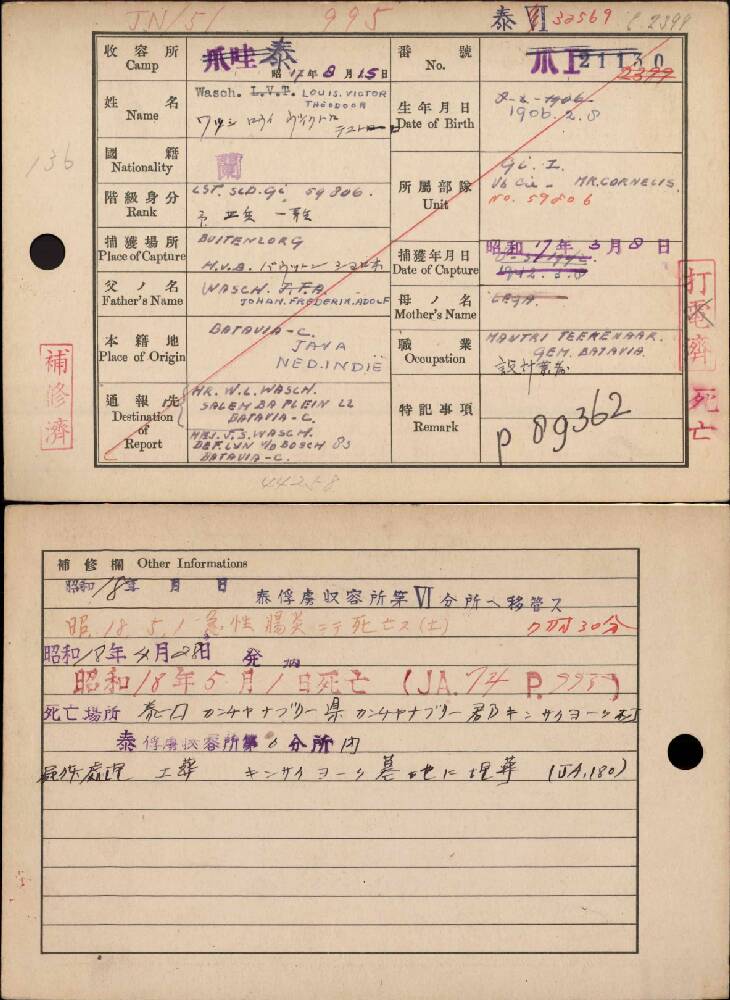 JN/51 995 泰 VI 32569 C.2399
收容所 Camp 爪哇 泰 昭17年8月15日
番號 No. 爪I 21130 2399
姓名 Name Wasch. L.V.T. LOUIS. VICTOR THEODOOR
ワッシ ロウイ
生年月日 Date of Birth 1906.2.8
136
國籍 Nationality 蘭
階級身分 Rank LST. SLD. Gi 59806.
工兵 一雜
所屬部隊 Unit Gi. I.
Vb Cie - MR.CORNELIS.
NO. 59806
捕獲場所 Place of Capture BUITENZORG
H.V.B.
捕獲年月日 Date of Capture 昭和17年3月8日
1942.3.8
父ノ名 Father's Name WASCH. J.F.A.
JOHAN. FREDERIK. ADOLF
母ノ名 Mother's Name
本籍地 Place of Origin BATAVIA-C.
JAVA
NED. INDIË
職業 Occupation MANTRI TEEKENAAR.
GEM. BATAVIA.
通報先 Destination of Report MR. W.L. WASCH.
SALEMBA PLEIN 22
BATAVIA-C.
MEJ. J.S. WASCH.
BATAVIA-C.
特記事項 Remark p 89362
補修濟
打電濟
死亡
44258
補修欄 Other Informations
昭和18年 月 日 泰俘虜収容所第VI分所ヘ移管ス
昭18.5.1 急性腸炎ニテ死亡ス(土) 7時30分
昭和18年4月28日 発病
昭和18年5月1日死亡 (JA.74 P.995)
死亡場所 泰国 カンチヤナブリー県 カンチヤナブリー郡 キンサイヨーク町
泰俘虜収容所第6分所内
屍体処理 土葬 キンサイヨーク墓地に埋葬 (JA.180)